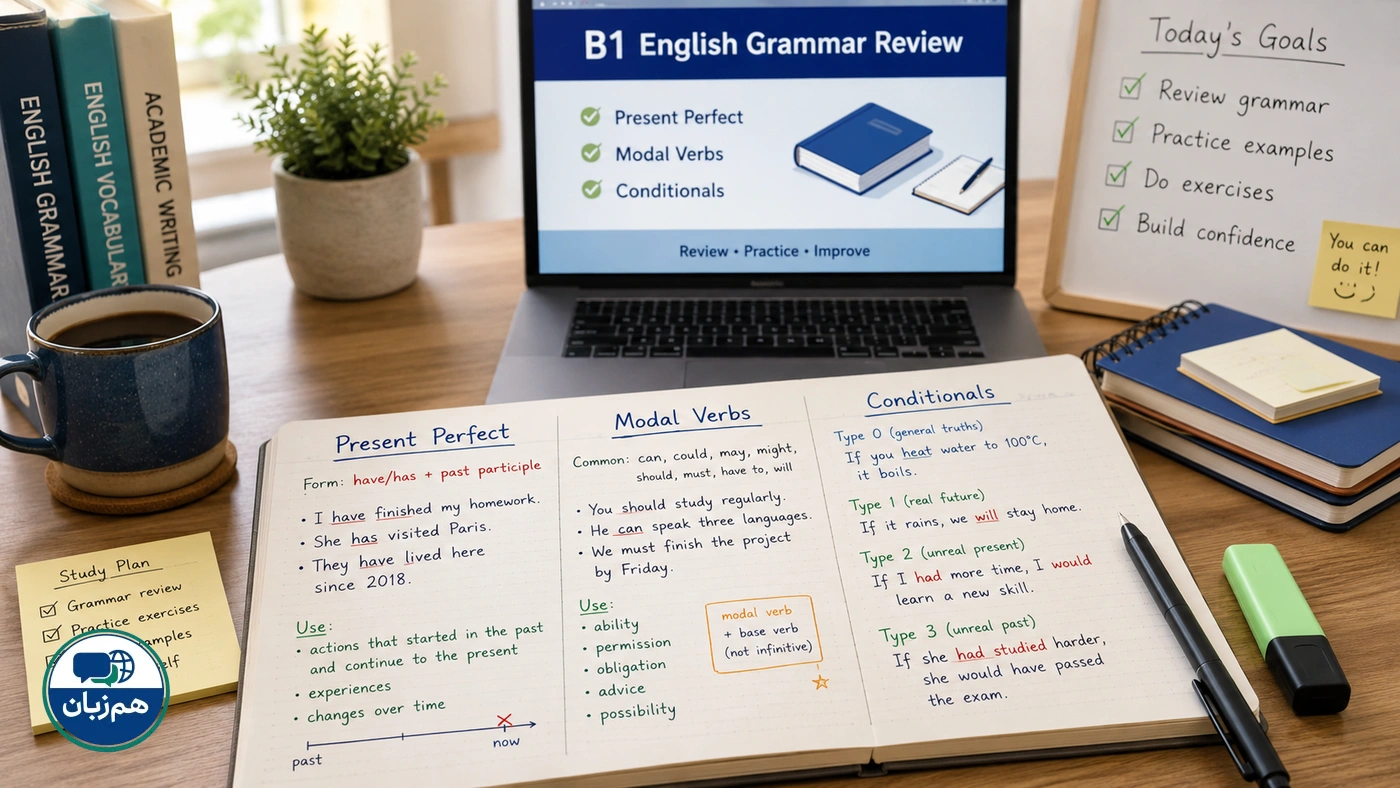 ENGLISH GRAMMAR
ENGLISH VOCABULARY
ACADEMIC WRITING
B1 English Grammar Review
Present Perfect
Modal Verbs
Conditionals
Review • Practice • Improve
Today's Goals
Review grammar
Practice examples
Do exercises
Build confidence
You can
do it!
Present Perfect
Form: have/has + past participle
• I have finished my homework.
• She has visited Paris.
• They have lived here
since 2018.
Use:
• actions that started in the past
and continue to the present
• experiences
• changes over time
past
now
Modal Verbs
Common: can, could, may, might,
should, must, have to, will
• You should study regularly.
• He can speak three languages.
• We must finish the project
by Friday.
Use:
• ability
• permission
• obligation
• advice
• possibility
modal verb
+ base verb
(not infinitive)
Conditionals
Type 0 (general truths)
If you heat water to 100°C,
it boils.
Type 1 (real future)
If it rains, we will stay home.
Type 2 (unreal present)
If I had more time, I would
learn a new skill.
Type 3 (unreal past)
If she had studied harder,
she would have passed
the exam.
Study Plan
Grammar review
Practice exercises
هم‌زبان